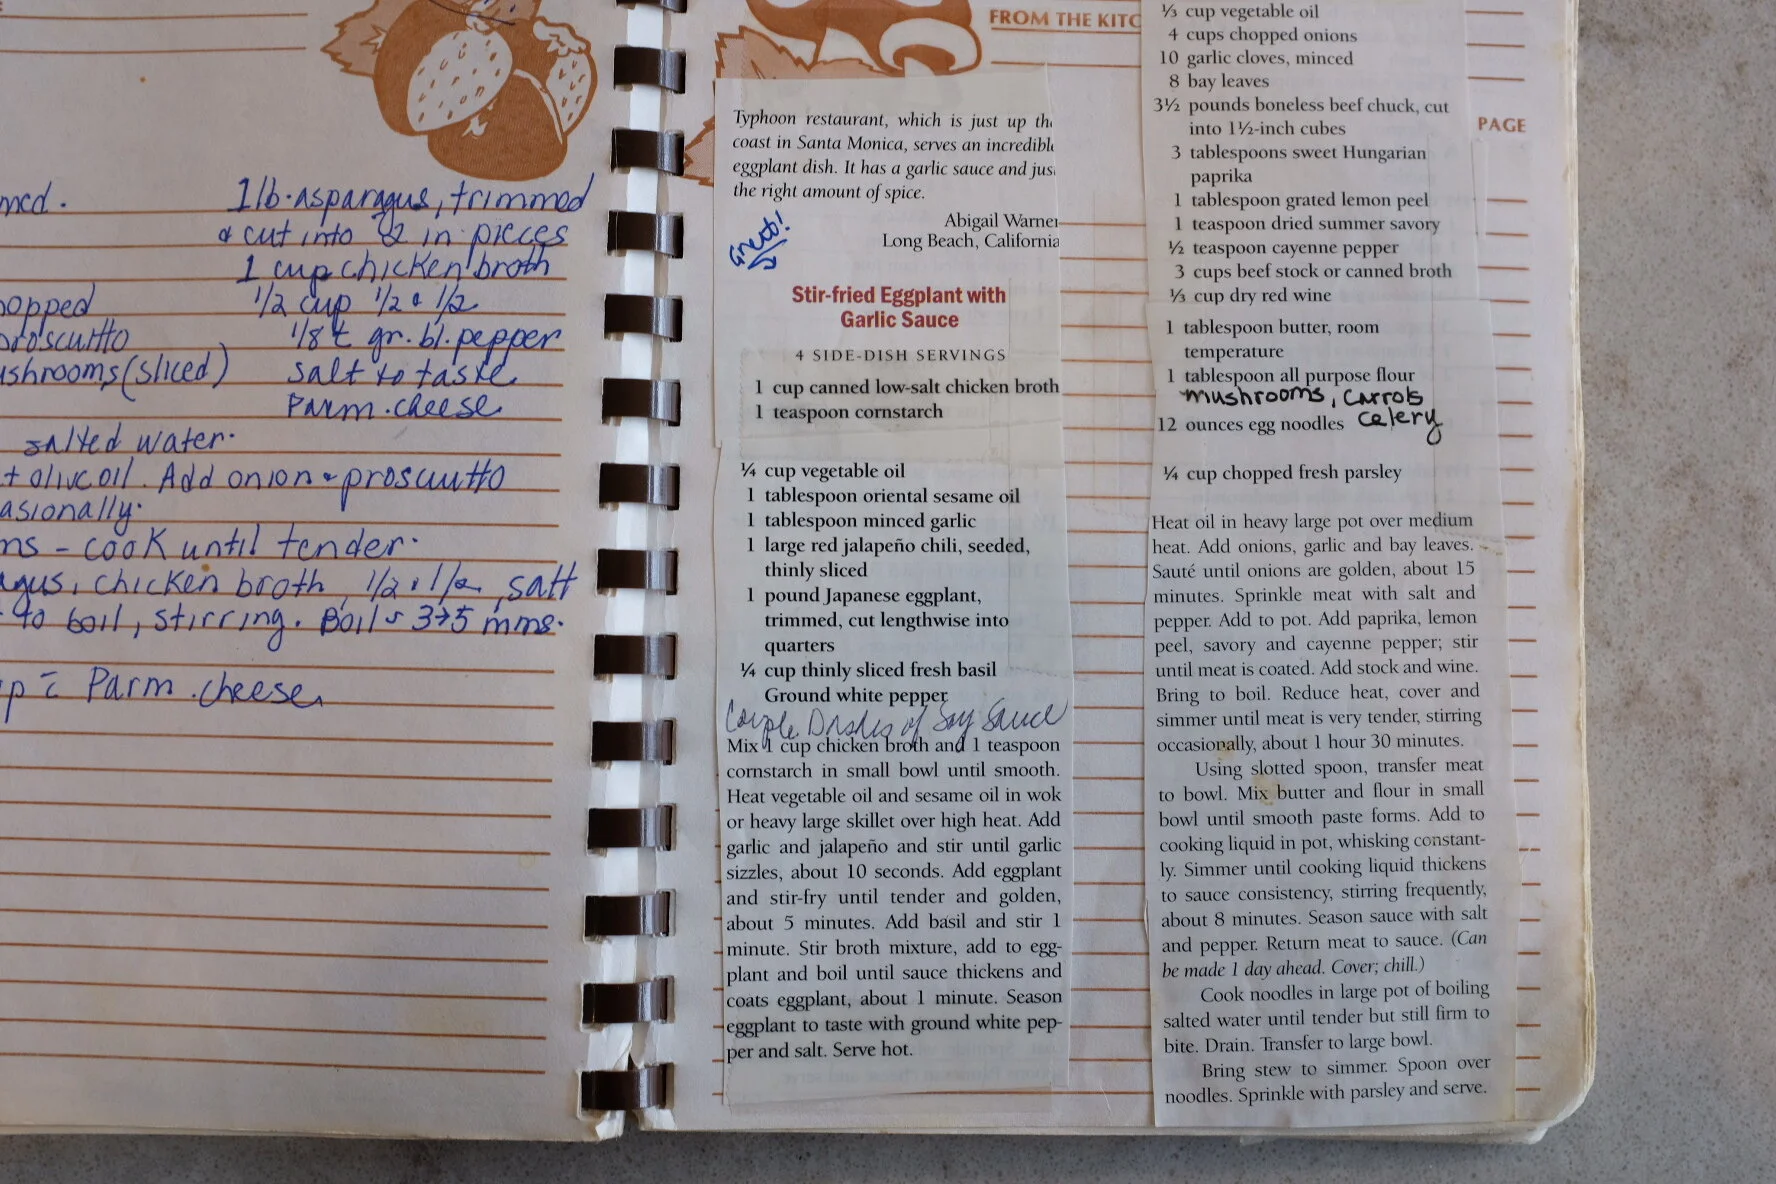 med.
opped
proscuitto
ushrooms (sliced)
1 lb. asparagus, trimmed
& cut into 1/2 in pieces
1 cup chicken broth
1/2 cup 1/2 & 1/2
1/8 t gr. bl. pepper
salt to taste
Parm. cheese
salted water.
+ olive oil. Add onion & proscuitto
asionally.
ms - cook until tender.
agus, chicken broth, 1/2 & 1/2, salt
to boil, stirring. Boil 3→5 mins.
p c̄ Parm. cheese
FROM THE KITC
Typhoon restaurant, which is just up the
coast in Santa Monica, serves an incredible
eggplant dish. It has a garlic sauce and jus
the right amount of spice.
Abigail Warner
Long Beach, California
Great!
Stir-fried Eggplant with
Garlic Sauce
4 SIDE-DISH SERVINGS
1 cup canned low-salt chicken broth
1 teaspoon cornstarch
¼ cup vegetable oil
1 tablespoon oriental sesame oil
1 tablespoon minced garlic
1 large red jalapeño chili, seeded,
thinly sliced
1 pound Japanese eggplant,
trimmed, cut lengthwise into
quarters
¼ cup thinly sliced fresh basil
Ground white pepper
Couple Dashes of Soy Sauce
Mix 1 cup chicken broth and 1 teaspoon
cornstarch in small bowl until smooth.
Heat vegetable oil and sesame oil in wok
or heavy large skillet over high heat. Add
garlic and jalapeño and stir until garlic
sizzles, about 10 seconds. Add eggplant
and stir-fry until tender and golden,
about 5 minutes. Add basil and stir 1
minute. Stir broth mixture, add to egg-
plant and boil until sauce thickens and
coats eggplant, about 1 minute. Season
eggplant to taste with ground white pep-
per and salt. Serve hot.
⅓ cup vegetable oil
4 cups chopped onions
10 garlic cloves, minced
8 bay leaves
3½ pounds boneless beef chuck, cut
into 1½-inch cubes
3 tablespoons sweet Hungarian
paprika
1 tablespoon grated lemon peel
1 teaspoon dried summer savory
½ teaspoon cayenne pepper
3 cups beef stock or canned broth
⅓ cup dry red wine
1 tablespoon butter, room
temperature
1 tablespoon all purpose flour
mushrooms, carrots
celery
12 ounces egg noodles
¼ cup chopped fresh parsley
Heat oil in heavy large pot over medium
heat. Add onions, garlic and bay leaves.
Sauté until onions are golden, about 15
minutes. Sprinkle meat with salt and
pepper. Add to pot. Add paprika, lemon
peel, savory and cayenne pepper; stir
until meat is coated. Add stock and wine.
Bring to boil. Reduce heat, cover and
simmer until meat is very tender, stirring
occasionally, about 1 hour 30 minutes.
Using slotted spoon, transfer meat
to bowl. Mix butter and flour in small
bowl until smooth paste forms. Add to
cooking liquid in pot, whisking constant-
ly. Simmer until cooking liquid thickens
to sauce consistency, stirring frequently,
about 8 minutes. Season sauce with salt
and pepper. Return meat to sauce. (Can
be made 1 day ahead. Cover; chill.)
Cook noodles in large pot of boiling
salted water until tender but still firm to
bite. Drain. Transfer to large bowl.
Bring stew to simmer. Spoon over
noodles. Sprinkle with parsley and serve.
PAGE